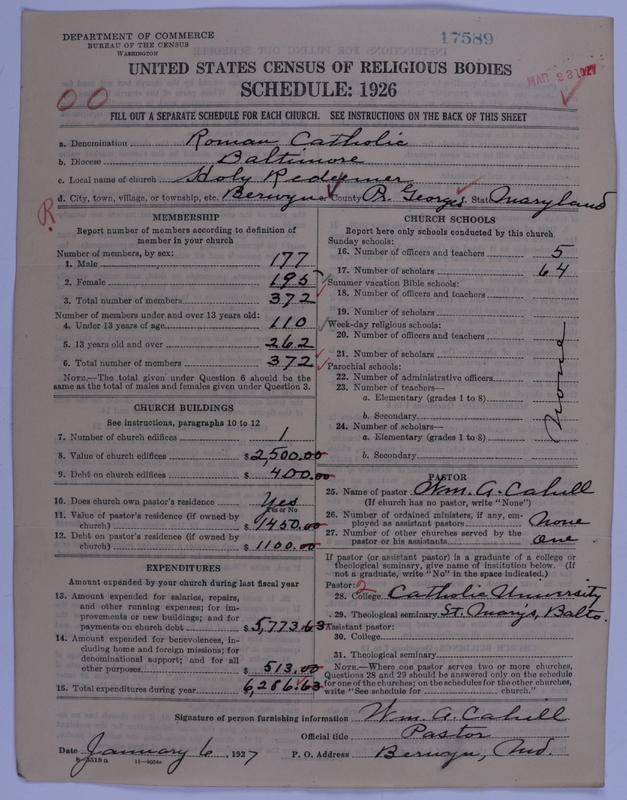 DEPARTMENT OF COMMERCE
BUREAU OF THE CENSUS
WASHINGTON
17589
UNITED STATES CENSUS OF RELIGIOUS BODIES
MAR 23 1927
SCHEDULE: 1926
00
FILL OUT A SEPARATE SCHEDULE FOR EACH CHURCH. SEE INSTRUCTIONS ON THE BACK OF THIS SHEET
a. Denomination Roman Catholic
b. Diocese Baltimore
c. Local name of church Holy Redeemer
d. City, town, village, or township, etc. Berwyn County Pr. Georges State Maryland
R
MEMBERSHIP
Report number of members according to definition of
member in your church
Number of members, by sex:
1. Male 177
2. Female 195
3. Total number of members 372
Number of members under and over 13 years old:
4. Under 13 years of age 110
5. 13 years old and over 262
6. Total number of members 372
NOTE.—The total given under Question 6 should be the
same as the total of males and females given under Question 3.
CHURCH BUILDINGS
See instructions, paragraphs 10 to 12
7. Number of church edifices 1
8. Value of church edifices $ 2,500.00
9. Debt on church edifices $ 400.00
10. Does church own pastor's residence Yes
Yes or No
11. Value of pastor's residence (if owned by
church) $ 1450.00
12. Debt on pastor's residence (if owned by
church) $ 1100.00
EXPENDITURES
Amount expended by your church during last fiscal year
13. Amount expended for salaries, repairs,
and other running expenses; for im-
provements or new buildings; and for
payments on church debt $ 5,773.63
14. Amount expended for benevolences, in-
cluding home and foreign missions; for
denominational support; and for all
other purposes $ 513.00
15. Total expenditures during year 6,286.63
CHURCH SCHOOLS
Report here only schools conducted by this church
Sunday schools:
16. Number of officers and teachers 5
17. Number of scholars 64
Summer vacation Bible schools:
18. Number of officers and teachers
19. Number of scholars
Week-day religious schools:
20. Number of officers and teachers
21. Number of scholars
Parochial schools:
22. Number of administrative officers
23. Number of teachers—
a. Elementary (grades 1 to 8)
b. Secondary
24. Number of scholars—
a. Elementary (grades 1 to 8)
b. Secondary
none
PASTOR
25. Name of pastor Wm. A. Cahill
(If church has no pastor, write "None")
26. Number of ordained ministers, if any, em-
ployed as assistant pastors None
27. Number of other churches served by the
pastor or his assistants One
If pastor (or assistant pastor) is a graduate of a college or
theological seminary, give name of institution below. (If
not a graduate, write "No" in the space indicated.)
Pastor: 2
28. College Catholic University
29. Theological seminary St. Mary's, Balto.
Assistant pastor:
30. College
31. Theological seminary
NOTE.—Where one pastor serves two or more churches,
Questions 28 and 29 should be answered only on the schedule
for one of the churches; on the schedules for the other churches,
write "See schedule for church."
Signature of person furnishing information Wm. A. Cahill
Official title Pastor
Date January 6, 1927 P. O. Address Berwyn, Md.